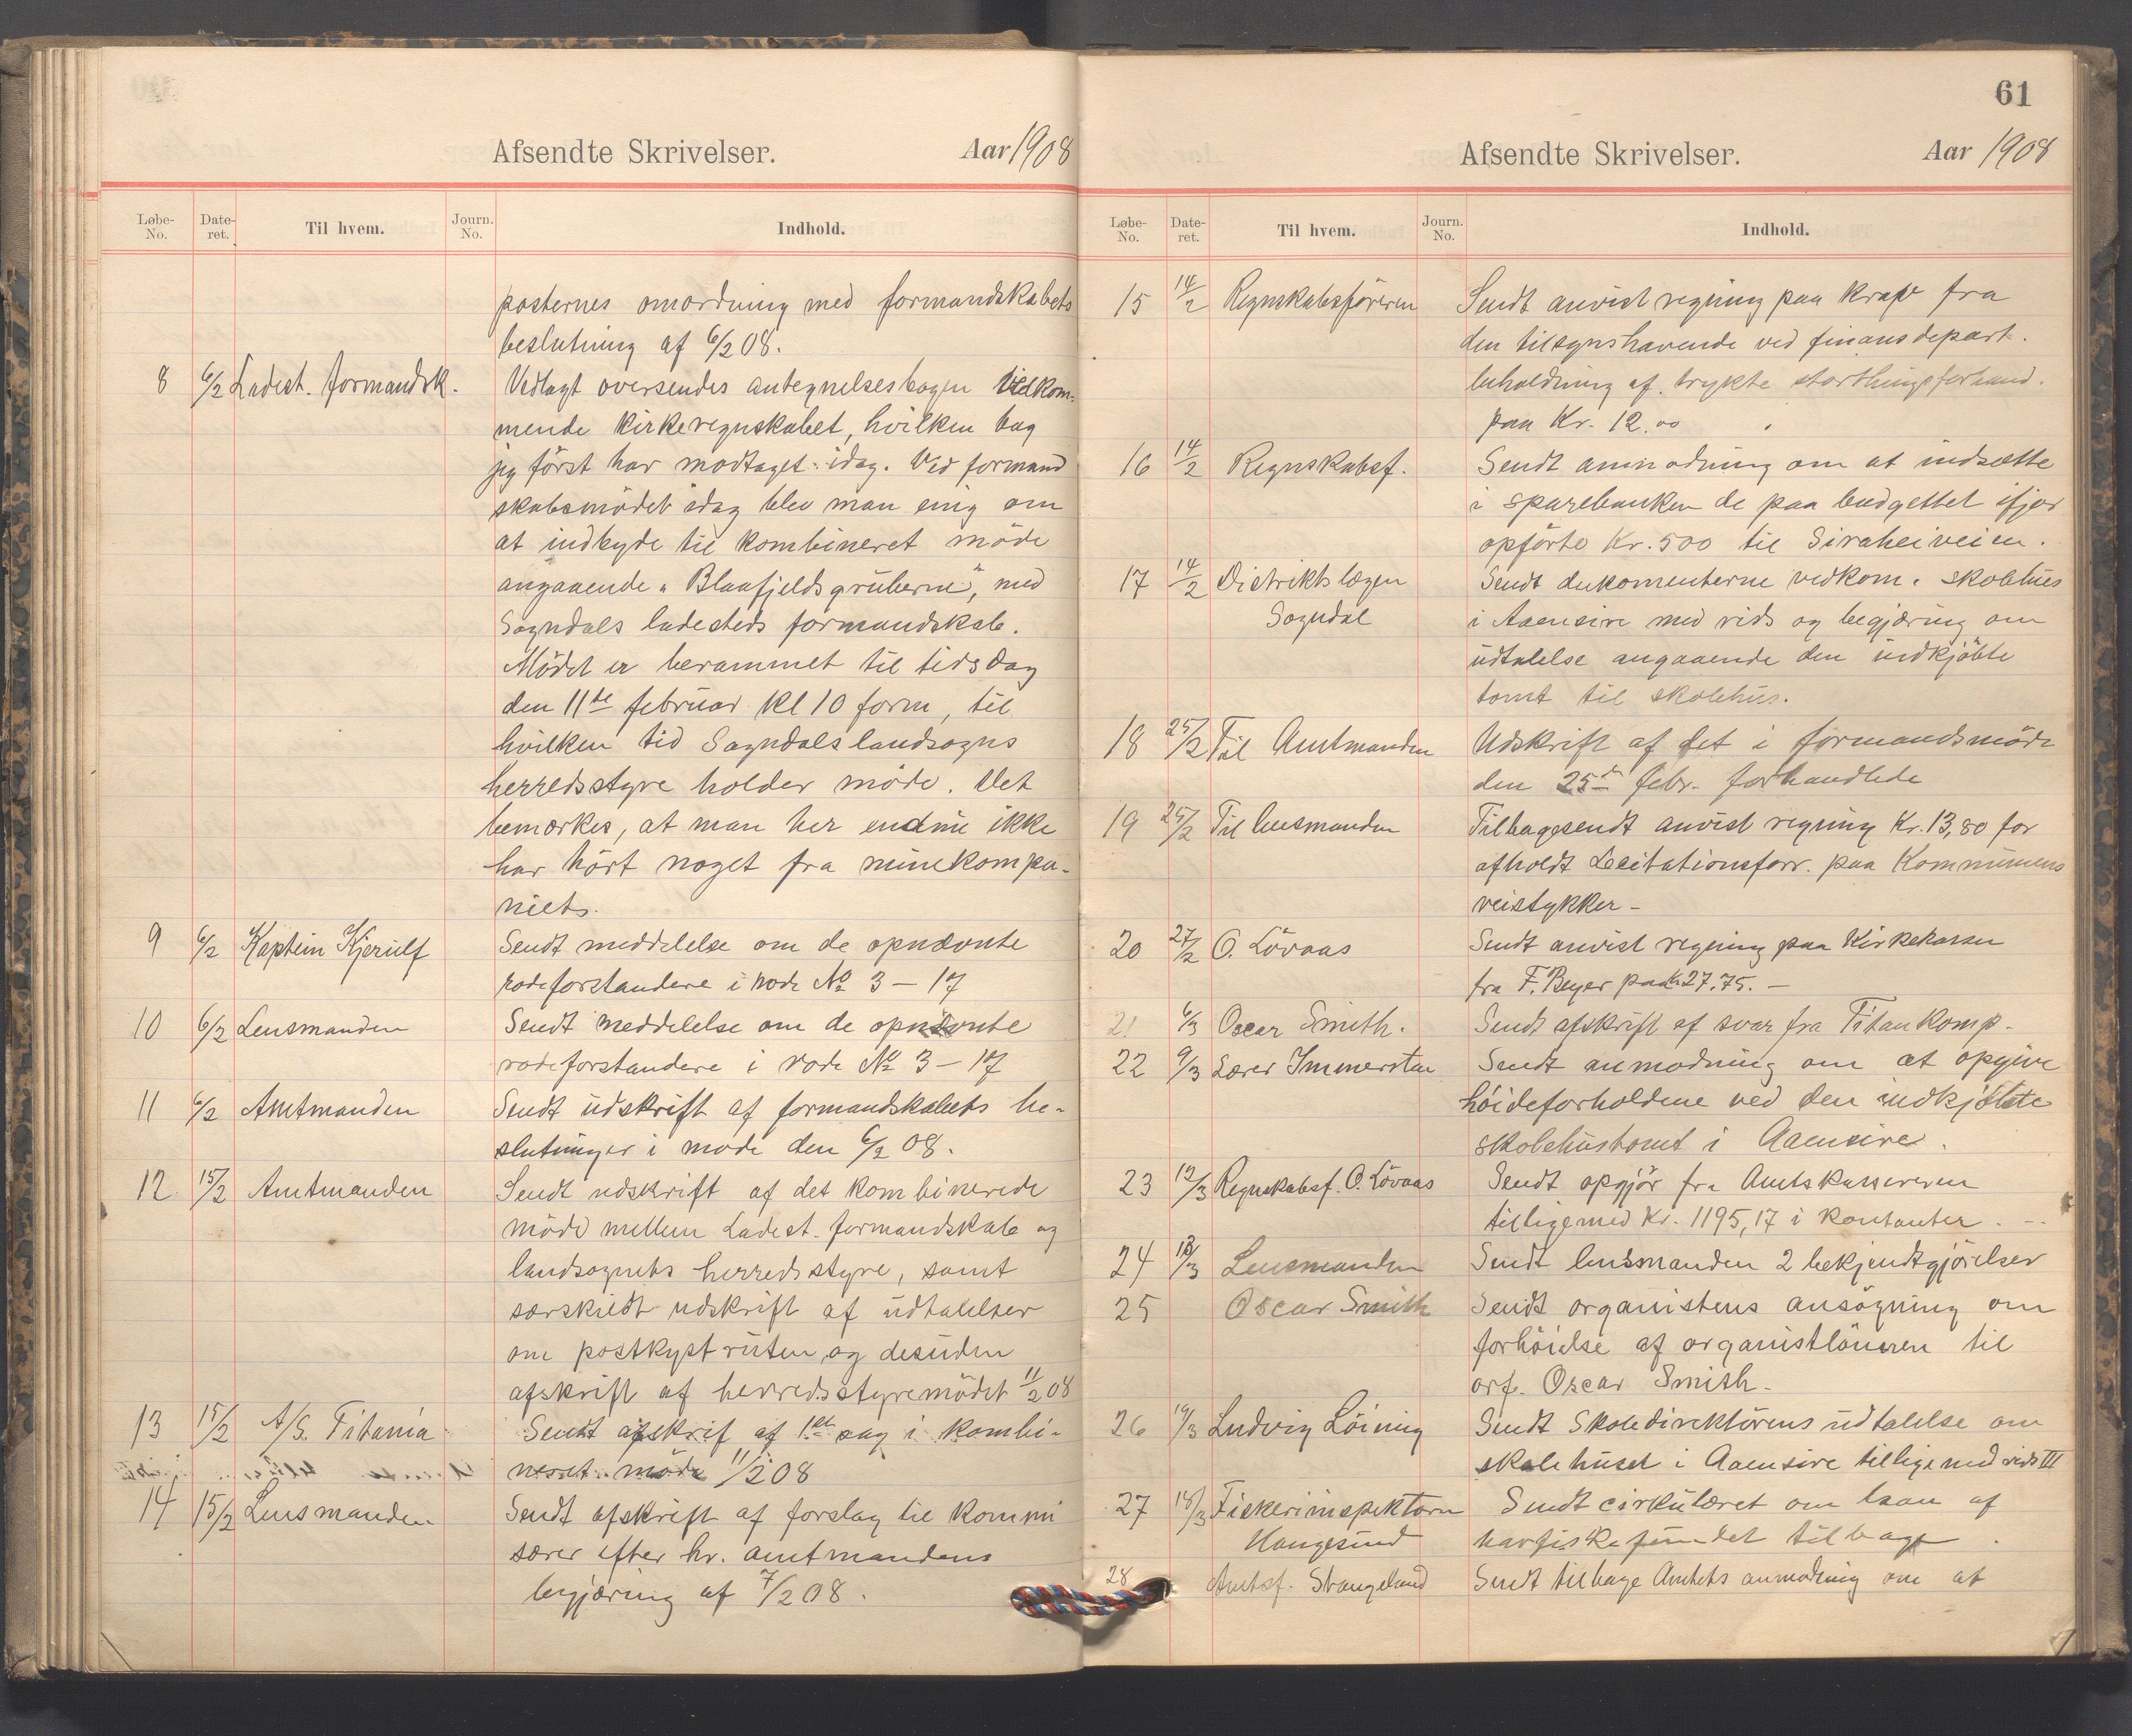 Afsendte Skrivelser. Aar 1908
Løbe-No. Date-ret. Til hvem. Journ. No. Indhold.
posternes omordning med formandskabets
beslutning af 6/2 08.
8 6/2 Ladest. formandsk. Vedlagt oversendes antegnelsesbogen vedkom-
mende kirkeregnskabet, hvilken bog
jeg först har modtaget idag. Ved formand
skabsmödet idag blev man enig om
at indbyde til kombineret möde
angaaende "Blaafjeldsgruberne", med
Sogndals ladesteds formandskab.
Mödet er berammet til tirsdag
den 11te februar kl 10 form, til
hvilken tid Sogndals landsogns
herredsstyre holder möde. Det
bemærkes, at man her endnu ikke
har hört noget fra minekompa-
niets.
9 6/2 Kaptein Kjerulf Sendt meddelelse om de opnævnte
rodeforstandere i rode No 3 – 17
10 6/2 Lensmanden Sendt meddelelse om de opnævnte
rodeforstandere i rode No 3 – 17
11 6/2 Amtmanden Sendt udskrift af formandskabets be-
slutninger i mode den 6/2 08.
12 15/2 Amtmanden Sendt udskrift af det kombinerede
möde mellem Ladest. formandskab og
landsognets herredsstyre, samt
særskildt udskrift af udtalelser
om postkystruten, og desuden
afskrift af herredsstyremödet 11/2 08
13 15/2 A/S. Titania Sendt afskrif af 1ste sag i kombi-
neret möde 11/2 08
14 15/2 Lensmanden Sendt afskrift af forslag til kommi
særer efter hr. amtmandens
begjæring af 7/2 08.
61
Afsendte Skrivelser. Aar 1908
Løbe-No. Date-ret. Til hvem. Journ. No. Indhold.
15 14/2 Regnskabsföreren Sendt anvist regning paa krav fra
den tilsynshavende ved finansdepart.
beholdning af trykte storthingsforhand.
paa Kr. 12.00
16 14/2 Regnskabsf. Sendt anmodning om at indsætte
i sparebanken de paa budgettet ifjor
opförte Kr. 500 til Siraheiveien.
17 14/2 Distriktslægen Sendt dokomenterne vedkom. skolehus
Sogndal i Aaensire med rids og begjæring om
udtalelse angaaende den indkjöbte
tomt til skolehus.
18 25/2 Til Amtmanden Udskrift af det i formandsmöde
den 25de febr. forhandlede
19 25/2 Til lensmanden Tilbagesendt anvist regning Kr. 13,80 for
afholdt Licitationsforr. paa Kommunens
veistykker –
20 27/2 O. Lövaas Sendt anvist regning paa Kirkekassen
fra F. Beyer paa kr 27.75. –
21 6/3 Oscar Smith. Sendt afskrift af svar fra Titankomp.
22 9/3 Lærer Immerstein Sendt anmodning om at opgive
höideforholdene ved den indkjöbte
skolehustomt i Aaensire.
23 12/3 Regnskabsf. O. Lövaas Sendt opgjör fra Amtskassereren
tilligemed Kr. 1195,17 i kontanter. –
24 13/3 Lensmanden Sendt lensmanden 2 bekjendtgjörelser
25 Oscar Smith Sendt organistens ansögning om
forhöielse af organistlönnen til
orf. Oscar Smith.
26 19/3 Ludvig Löining Sendt Skoledirektörens udtalelse om
skolehuset i Aaensire tilligemed rids III
27 18/3 Fiskeriinspektören Sendt cirkulæret om laan af
Haugesund havfiskefondet tilbage.
28 Amtsf. Stangeland Sendt tilbage Amtets anmodning om at